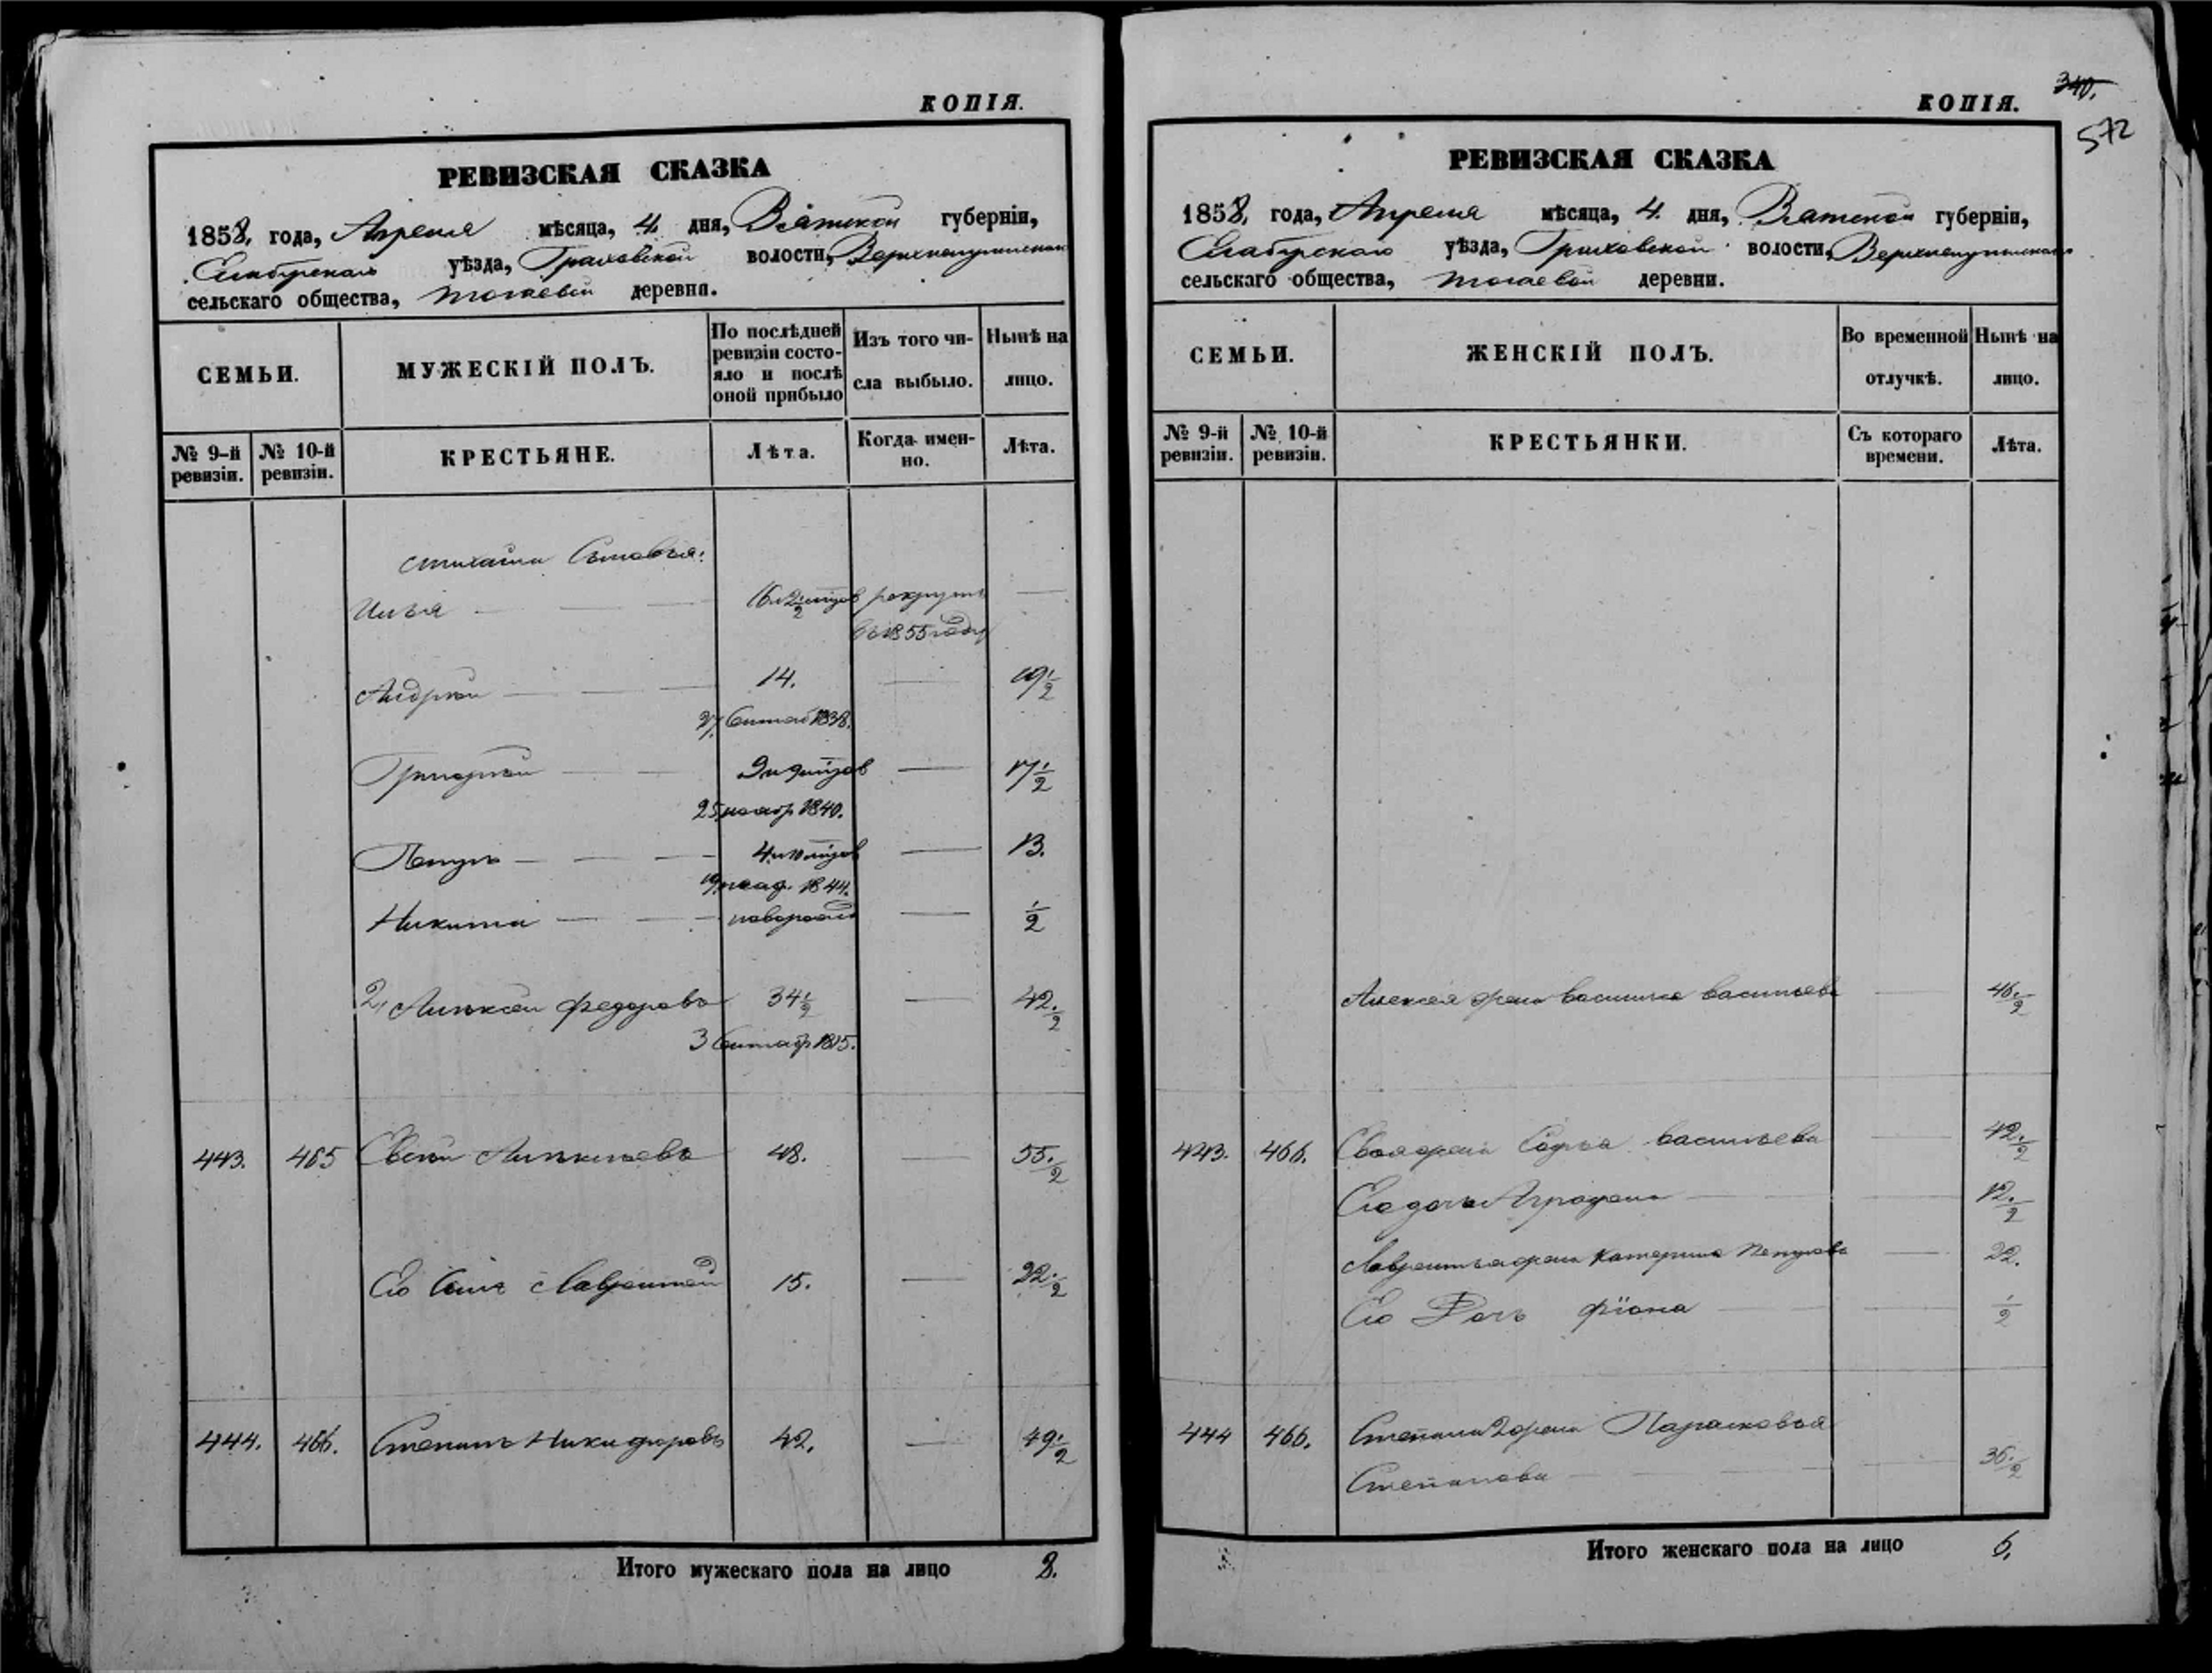 КОПІЯ.
РЕВИЗСКАЯ СКАЗКА
1858. года, Апреля мѣсяца, 4. дня, Вятской губерніи,
Елабугскаго уѣзда, Граховской волости,
сельскаго общества, деревни.
СЕМЬИ.
МУЖЕСКІЙ ПОЛЪ.
По послѣдней ревизіи состояло и послѣ оной прибыло
Изъ того числа выбыло.
Нынѣ на лицо.
№ 9-й ревизіи.
№ 10-й ревизіи.
КРЕСТЬЯНЕ.
Лѣта.
Когда имен-но.
Лѣта.
Михаила Сыновья:
Илья рекрутъ —
въ 1855 году
Андрей — 14. — 19 1/2
27. 1838.
Григорій — — 17 1/2
25 нояб 1840.
Петръ — — 13.
1844.
Никита — новорожд — 1/2
2, Алексѣй Федоровъ 34 1/2 — 42 1/2
3 Сентяб 1815.
443. 465 48. — 55 1/2
Его Сынъ Лаврентій 15. — 22 1/2
444. 466. Степанъ Никифоровъ 42. — 49 1/2
Итого мужескаго пола на лицо 8.
КОПІЯ.
340.
572
РЕВИЗСКАЯ СКАЗКА
1858. года, Апреля мѣсяца, 4. дня, Вятской губерніи,
Елабугскаго уѣзда, Граховской волости,
сельскаго общества, деревни.
СЕМЬИ.
ЖЕНСКІЙ ПОЛЪ.
Во временной отлучкѣ.
Нынѣ на лицо.
№ 9-й ревизіи.
№ 10-й ревизіи.
КРЕСТЬЯНКИ.
Съ котораго времени.
Лѣта.
Алексея жена Василиса Васильева — 46 1/2
443. 466. жена Софья Васильева — 42 1/2
Его дочь Аграфена — 12 1/2
Лаврентья жена Катерина Петрова — 22.
Его Дочь Фіона — 1/2
444 466. Степана 2 жена Парасковья
Степанова — 36 1/2
Итого женскаго пола на лицо 6.